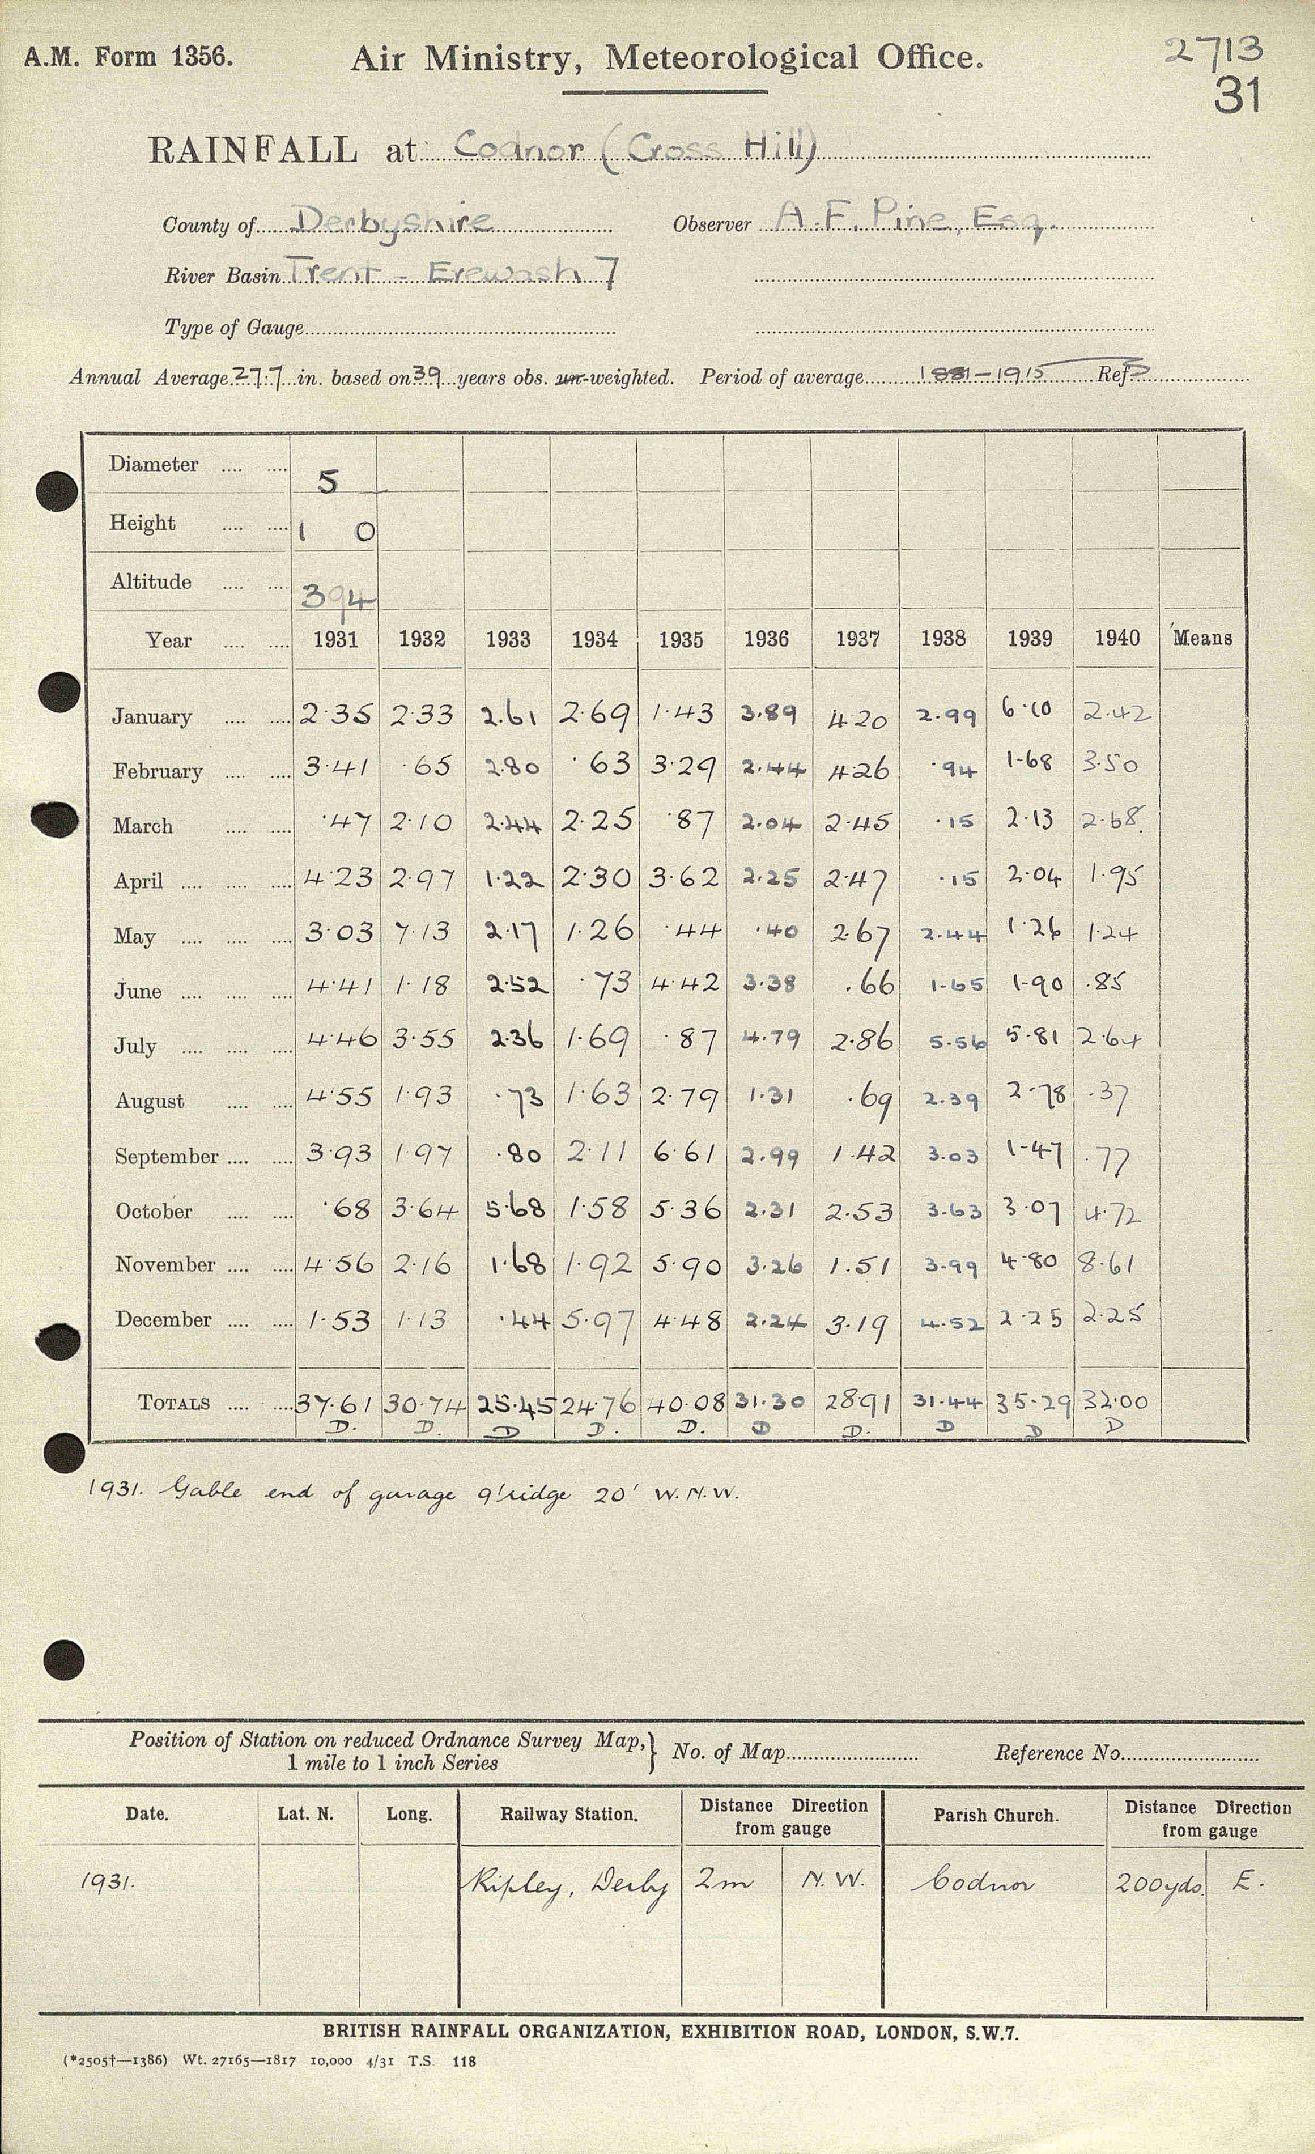 A.M. Form 1356. Air Ministry, Meteorological Office. 2713
31
RAINFALL at Codnor (Cross Hill)
County of Derbyshire Observer A.F. Pine, Esq.
River Basin Trent - Erewash 7
Type of Gauge
Annual Average 27.7 in. based on 39 years obs. un-weighted. Period of average 1881-1915 Ref
Diameter 5
Height 1 0
Altitude 394
Year 1931 1932 1933 1934 1935 1936 1937 1938 1939 1940 Means
January 2.35 2.33 2.61 2.69 1.43 3.89 4.20 2.99 6.10 2.42
February 3.41 .65 2.80 .63 3.29 2.44 4.26 .94 1.68 3.50
March .47 2.10 2.44 2.25 .87 2.04 2.45 .15 2.13 2.68
April 4.23 2.97 1.22 2.30 3.62 2.25 2.47 .15 2.04 1.95
May 3.03 7.13 2.17 1.26 .44 .40 2.67 2.44 1.26 1.24
June 4.41 1.18 2.52 .73 4.42 3.38 .66 1.65 1.90 .85
July 4.46 3.55 2.36 1.69 .87 4.79 2.86 5.56 5.81 2.64
August 4.55 1.93 .73 1.63 2.79 1.31 .69 2.39 2.78 .37
September 3.93 1.97 .80 2.11 6.61 2.99 1.42 3.03 1.47 .77
October .68 3.64 5.68 1.58 5.36 2.31 2.53 3.63 3.07 4.72
November 4.56 2.16 1.68 1.92 5.90 3.26 1.51 3.99 4.80 8.61
December 1.53 1.13 .44 5.97 4.48 2.24 3.19 4.52 2.25 2.25
TOTALS 37.61 30.74 25.45 24.76 40.08 31.30 28.91 31.44 35.29 32.00
D. D. D D. D. D D. D D D
1931. Gable end of garage 9' ridge 20' W.N.W.
Position of Station on reduced Ordnance Survey Map, } No. of Map Reference No.
1 mile to 1 inch Series
Date. Lat. N. Long. Railway Station. Distance Direction Parish Church. Distance Direction
from gauge from gauge
1931. Ripley, Derby 2m N.W. Codnor 200yds. E.
BRITISH RAINFALL ORGANIZATION, EXHIBITION ROAD, LONDON, S.W.7.
(*2505†—1386) Wt. 27165—1817 10,000 4/31 T.S. 118